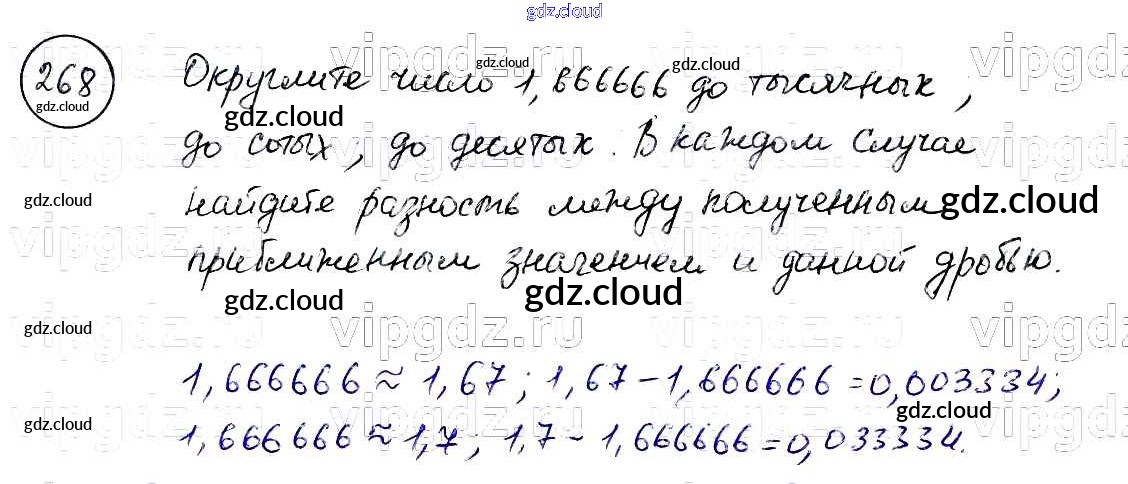 gdz.cloud
268
gdz.cloud
Округлите число 1,666666 до тысячных,
gdz.cloud gdz.cloud gdz.cloud
до сотых, до десятых. В каждом случае
gdz.cloud найдите разность между полученным gdz.cloud
приближенным значением и данной дробью.
gdz.cloud gdz.cloud
gdz.cloud
1,666666 ≈ 1,67; 1,67 - 1,666666 = 0,003334;
gdz.cloud gdz.cloud
1,666666 ≈ 1,7; 1,7 - 1,666666 = 0,033334.
vipgdz.ru